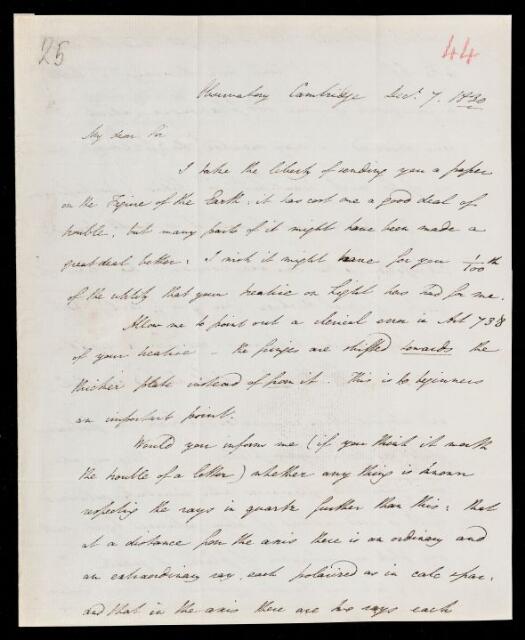 25
44
Observatory Cambridge Decr. 7. 1830
My dear Sir
I take the liberty of sending you a paper
on the Figure of the Earth: it has cost me a good deal of
trouble; but many parts of it might have been made a
great deal better: I wish it might have for you 1/100th
of the utility that your treatise on Light has had for me.
Allow me to point out a clerical error in Art 738
of your treatise – the fringes are shifted towards the
thicker plate instead of from it. This is to beginners
an important point.
Would you inform me (if you think it worth
the trouble of a letter) whether any thing is known
respecting the rays in quartz further than this: that
at a distance from the axis there is an ordinary and
an extraordinary ray, each polarized as in calc spar,
and that in the axis there are two rays each